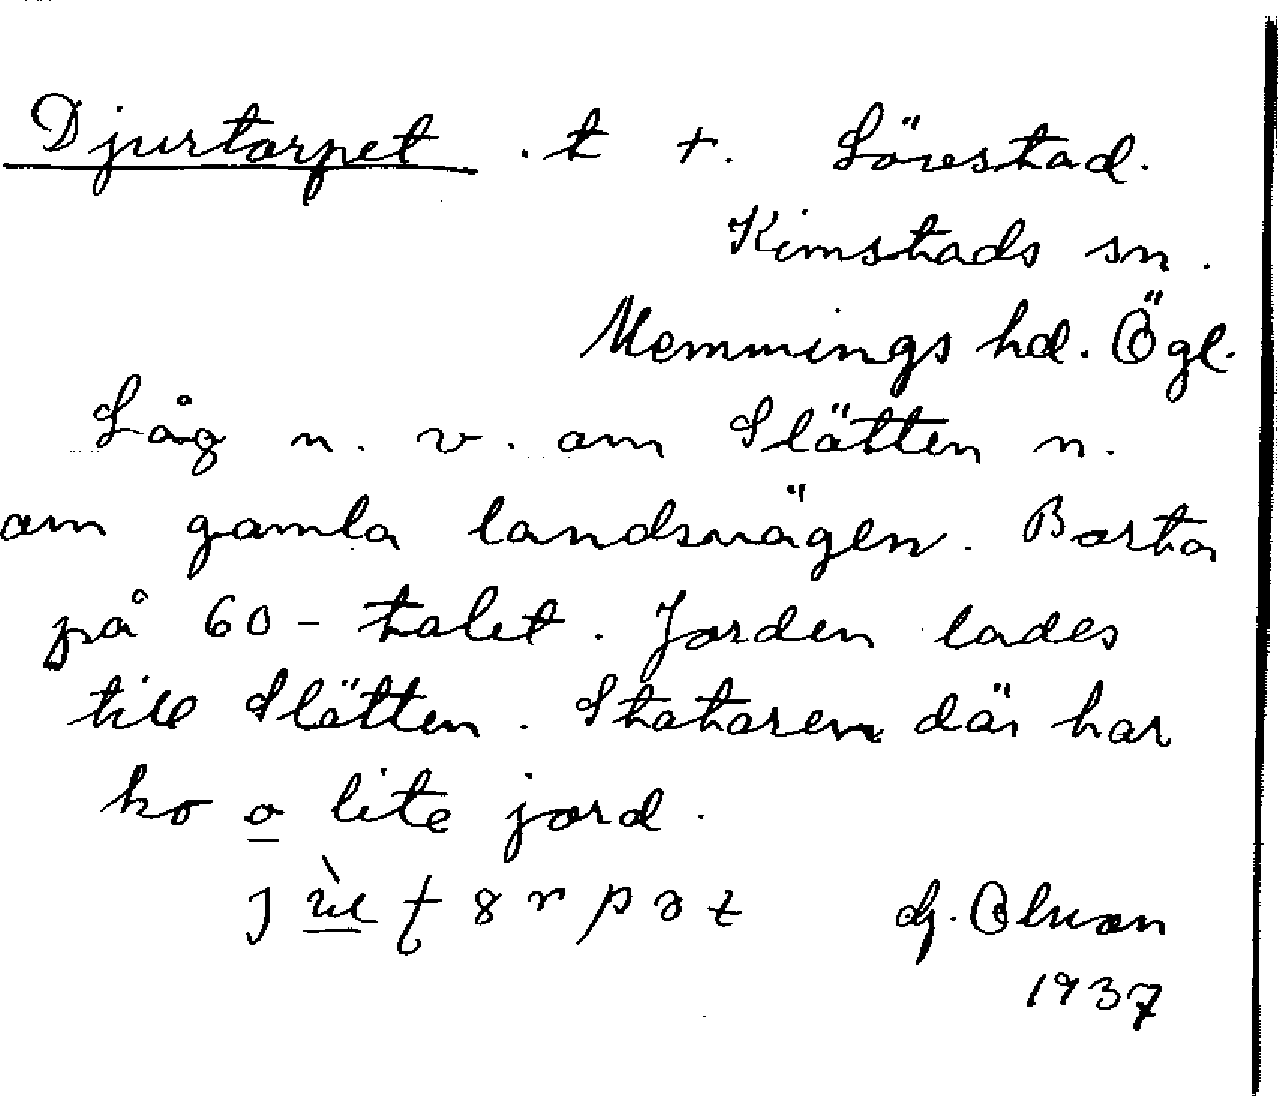 Djurtorpet . t +. Lövestad.
Kimstads sn.
Memmings hd. Ögl.
Låg n. v. om Slätten n.
om gamla landsvägen. Borta
på 60-talet. Jorden lades
till Slätten. Stataren där har
ko o lite jord.
1937